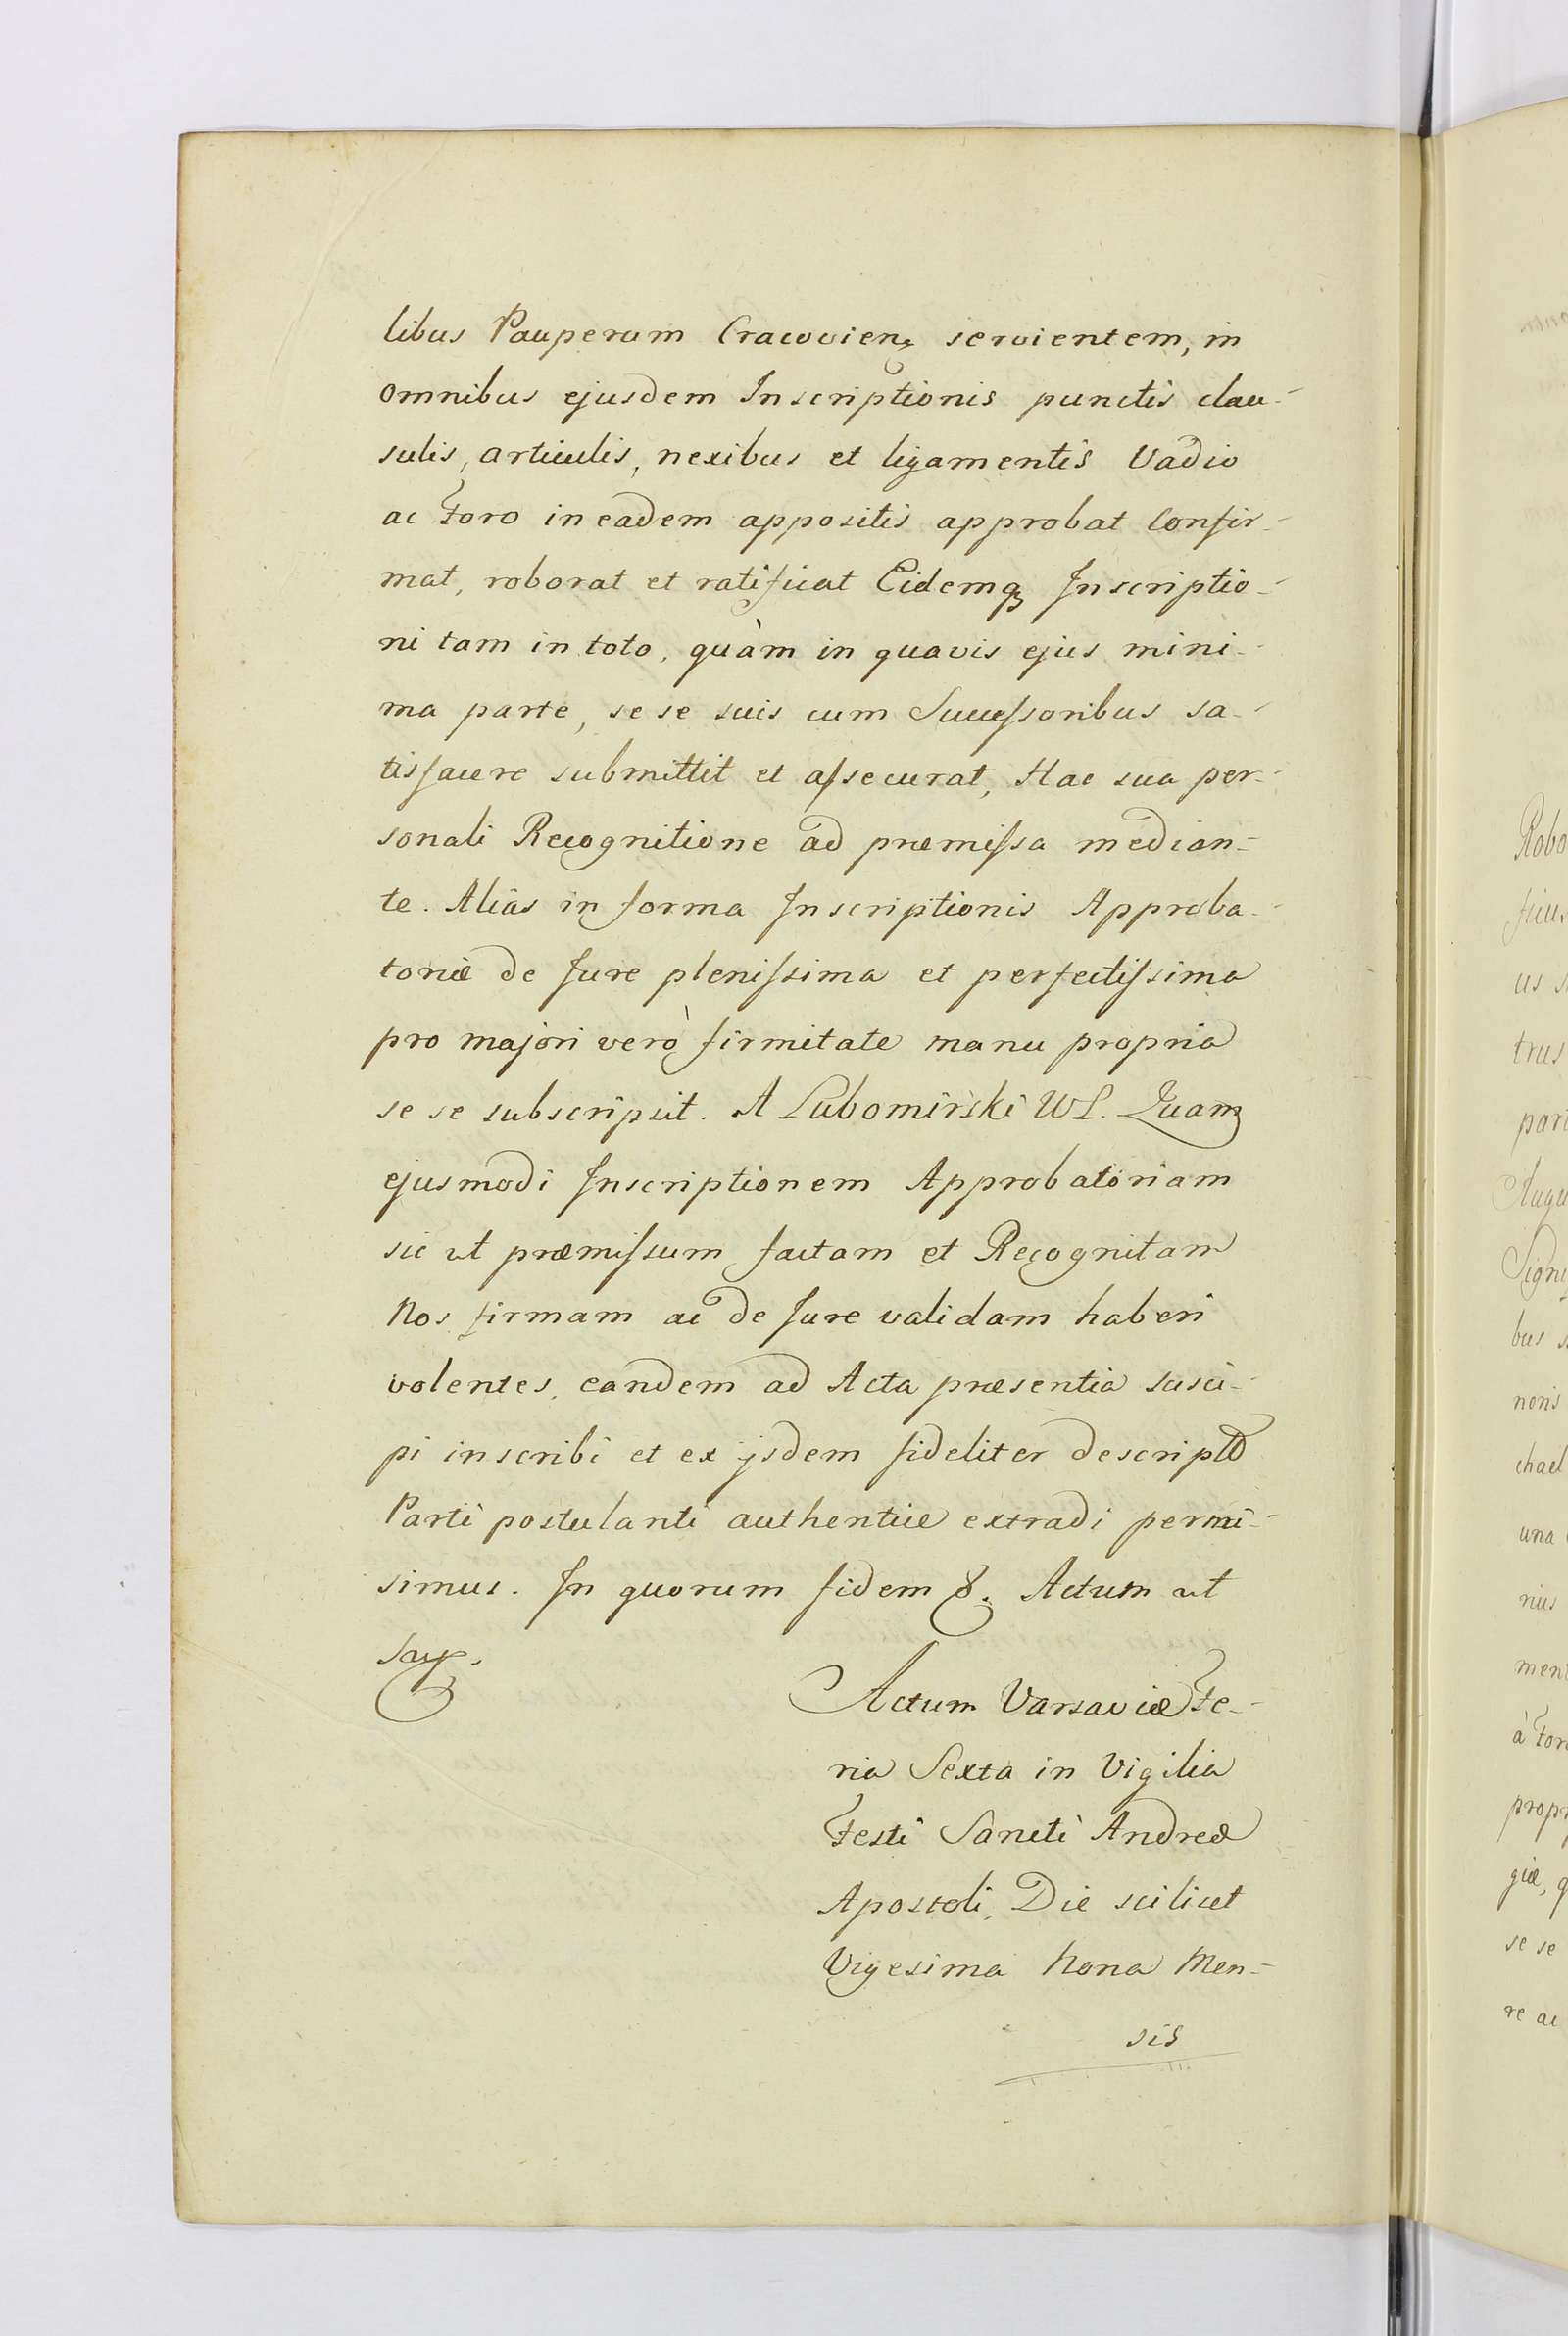 libus Pauperum Cracovien: servientem, in
omnibus ejusdem Inscriptionis punctis clau-
sulis, articulis, nexibus et ligamentis Vadio
ac Foro in eadem appositis approbat Confir-
mat, roborat et ratificat Eidemq; Inscriptio-
ni tam in toto, quàm in quavis ejus mini-
ma parte, se se suis cum Successoribus sa-
tisfacere submittit et assecurat, Hac sua per-
sonali Recognitione ad præmissa median-
te. Aliàs in forma Inscriptionis Approba-
toriæ de Jure plenissima et perfectissima
pro majori verò firmitate manu propria
se se subscripsit. A Lubomirski WS. Quam
ejusmodi Inscriptionem Approbatoriam
sic ut præmissum factam et Recognitam
Nos firmam ac de Jure validam haberi
volentes, eandem ad Acta præsentia susci-
pi inscribi et ex ijsdem fideliter descriptã
Parti postulanti authentice extradi permi-
simus. In quorum fidem &. Actum ut
sup.
Actum Varsaviæ Fe-
ria Sexta in Vigilia
Festi Sancti Andreæ
Apostoli, Die scilicet
Vigesima Nona Men-
sis
Robo
us
trus
part
Augu
Signi
bus
noris
chael
una
nius
men
à For
prop
giæ, q
se se
re ac